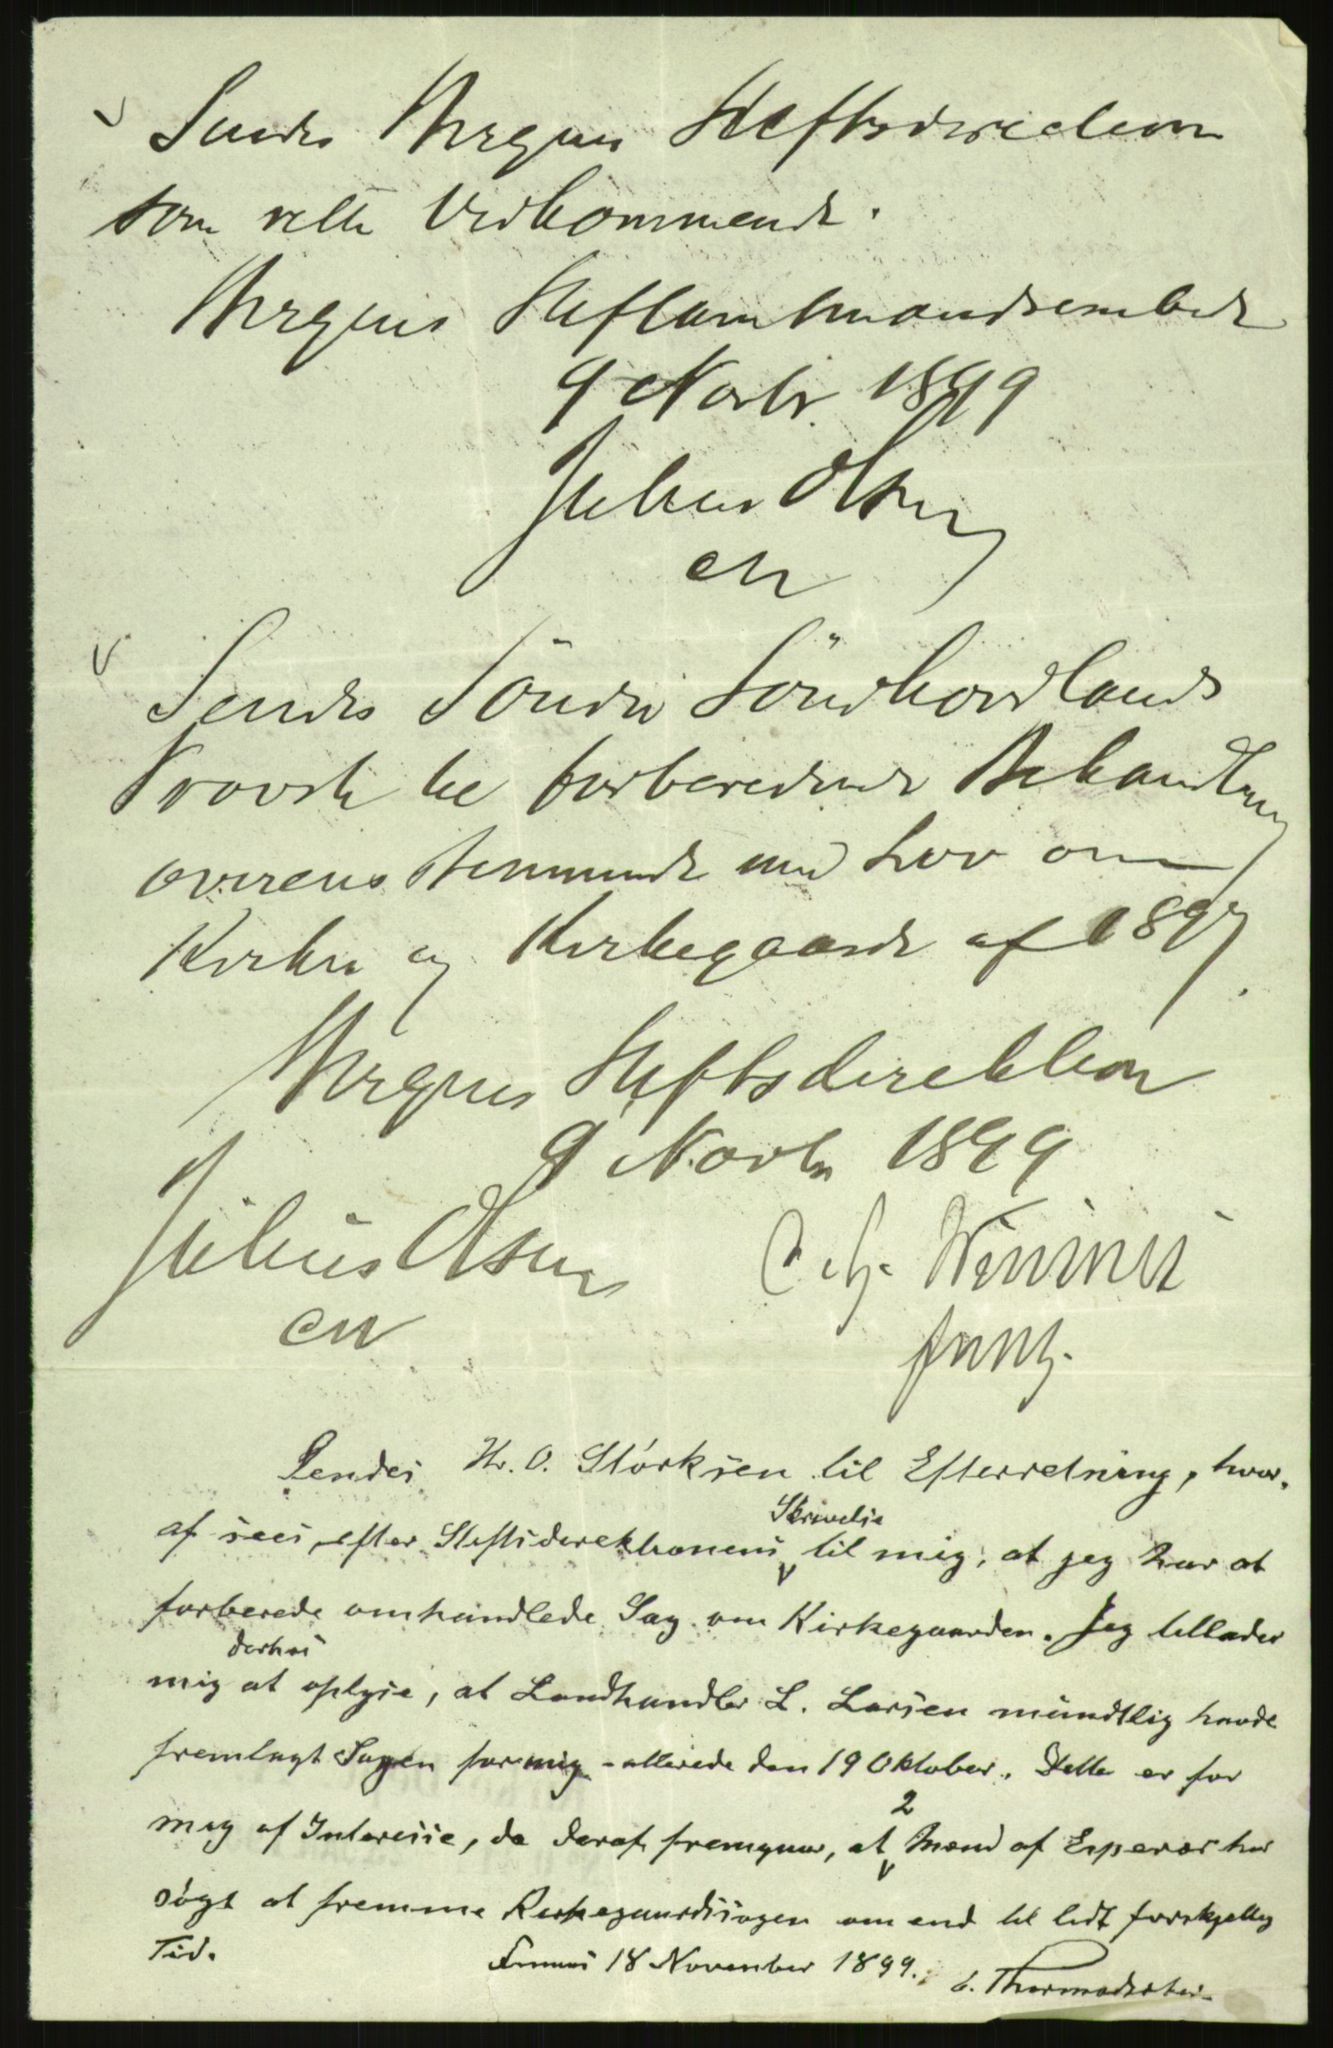 Sendes Bergens Stiftsdirection
som rette Vedkommende.
Bergens Stiftamtmandsembede
9 Novbr. 1899
Julius Olsen
Sendes Söndre Söndhordlands
Provsti til forberedende Behandling
overensstemmende med Lov om
Kirker og Kirkegaarde af 1897.
Bergens Stiftsdirektion
9 Novbr 1899
Julius Olsen
Sendes Hr. O. Störksen til Efterretning, hvor-
af sees, efter Stiftsdirektionens Skrivelse til mig, at jeg har at
forberede omhandlede Sag om Kirkegaarden. Jeg tillader
mig derhos at oplyse, at Landhandler L. Larsen mundtlig havde
fremlagt Sagen for mig allerede den 19 Oktober. Dette er for
mig af Interesse, da deraf fremgaar, at 2 Mænd af Espevær har
søgt at fremme Kirkegaardssagen om end til lidt forskjellig
Tid.
Finnaas 18 November 1899.